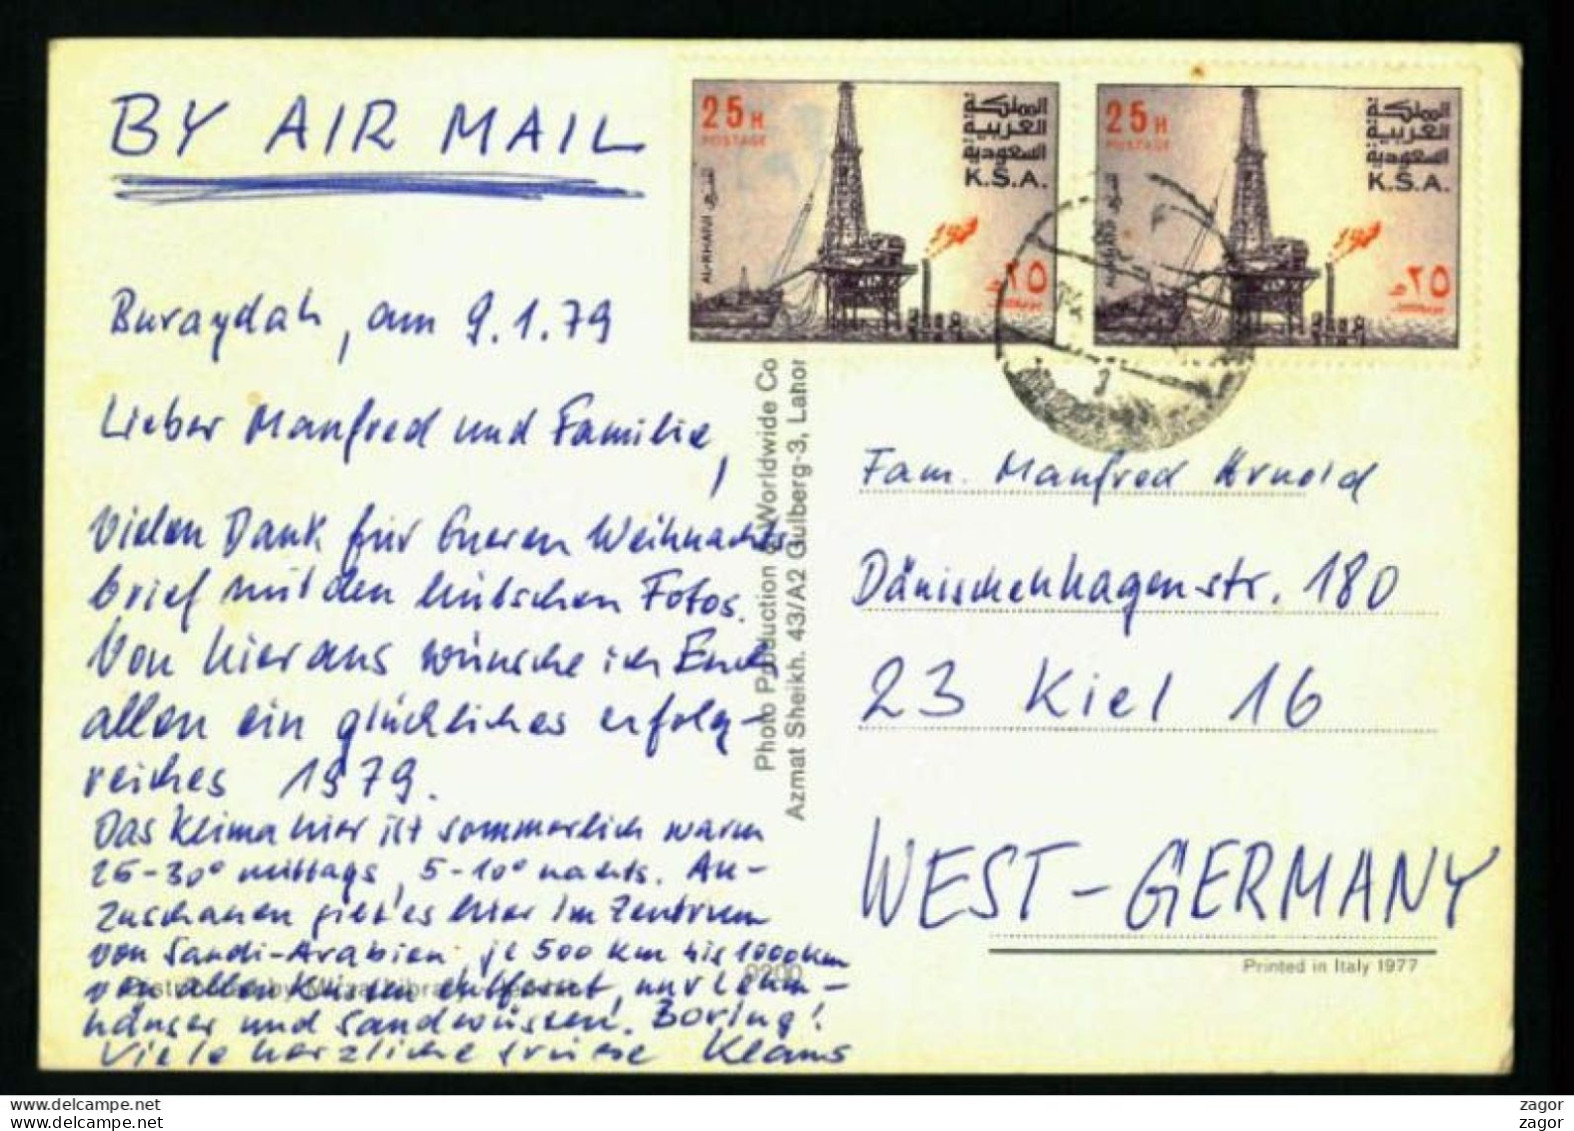 BY AIR MAIL
Buraydah, am 9.1.79
Lieber Manfred und Familie,
Vielen Dank für Eueren Weihnachts
brief mit den hübschen Fotos.
Von hier aus wünsche ich Euch
allen ein glückliches erfolg-
reiches 1979.
Das Klima hier ist sommerlich warm
25-30° mittags, 5-10° nachts. An-
zuschauen gibt es hier im Zentrum
von Saudi-Arabien je 500 km bis 1000 km
von allen Küsten entfernt, nur Lehm-
häuser und Sandwüsten. Boring!
Viele herzliche Grüsse Klaus
Photo Production of Worldwide Co
Azmat Sheikh. 43/A2 Gulberg-3, Lahor
0200
25 H
POSTAGE
المملكة
العربية
السعودية
K.S.A.
AL-KHAFJI
٢٥
25 H
POSTAGE
المملكة
العربية
السعودية
K.S.A.
٢٥
Fam. Manfred Arnold
Dänischenhagenstr. 180
23 Kiel 16
WEST-GERMANY
Printed in Italy 1977
zagor
zagor